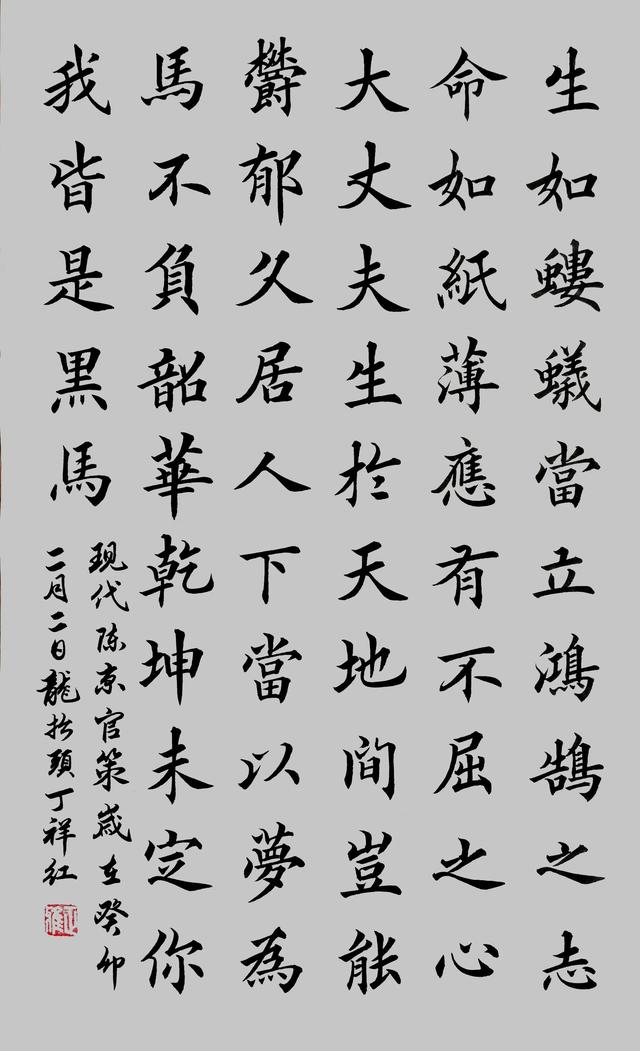 生如螻蟻當立鴻鵠之志
命如紙薄應有不屈之心
大丈夫生於天地間豈能
欝郁久居人下當以夢為
馬不負韶華乾坤未定你
我皆是黑馬
现代陈京官策歲在癸卯
二月二日龍抬頭丁祥红